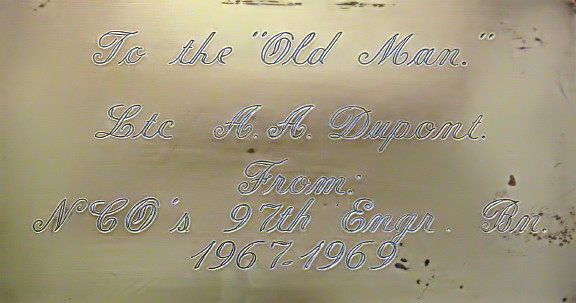 To the "Old Man."
Ltc A. A. Dupont.
From:
NCO's 97th Engr. Bn.
1967-1969